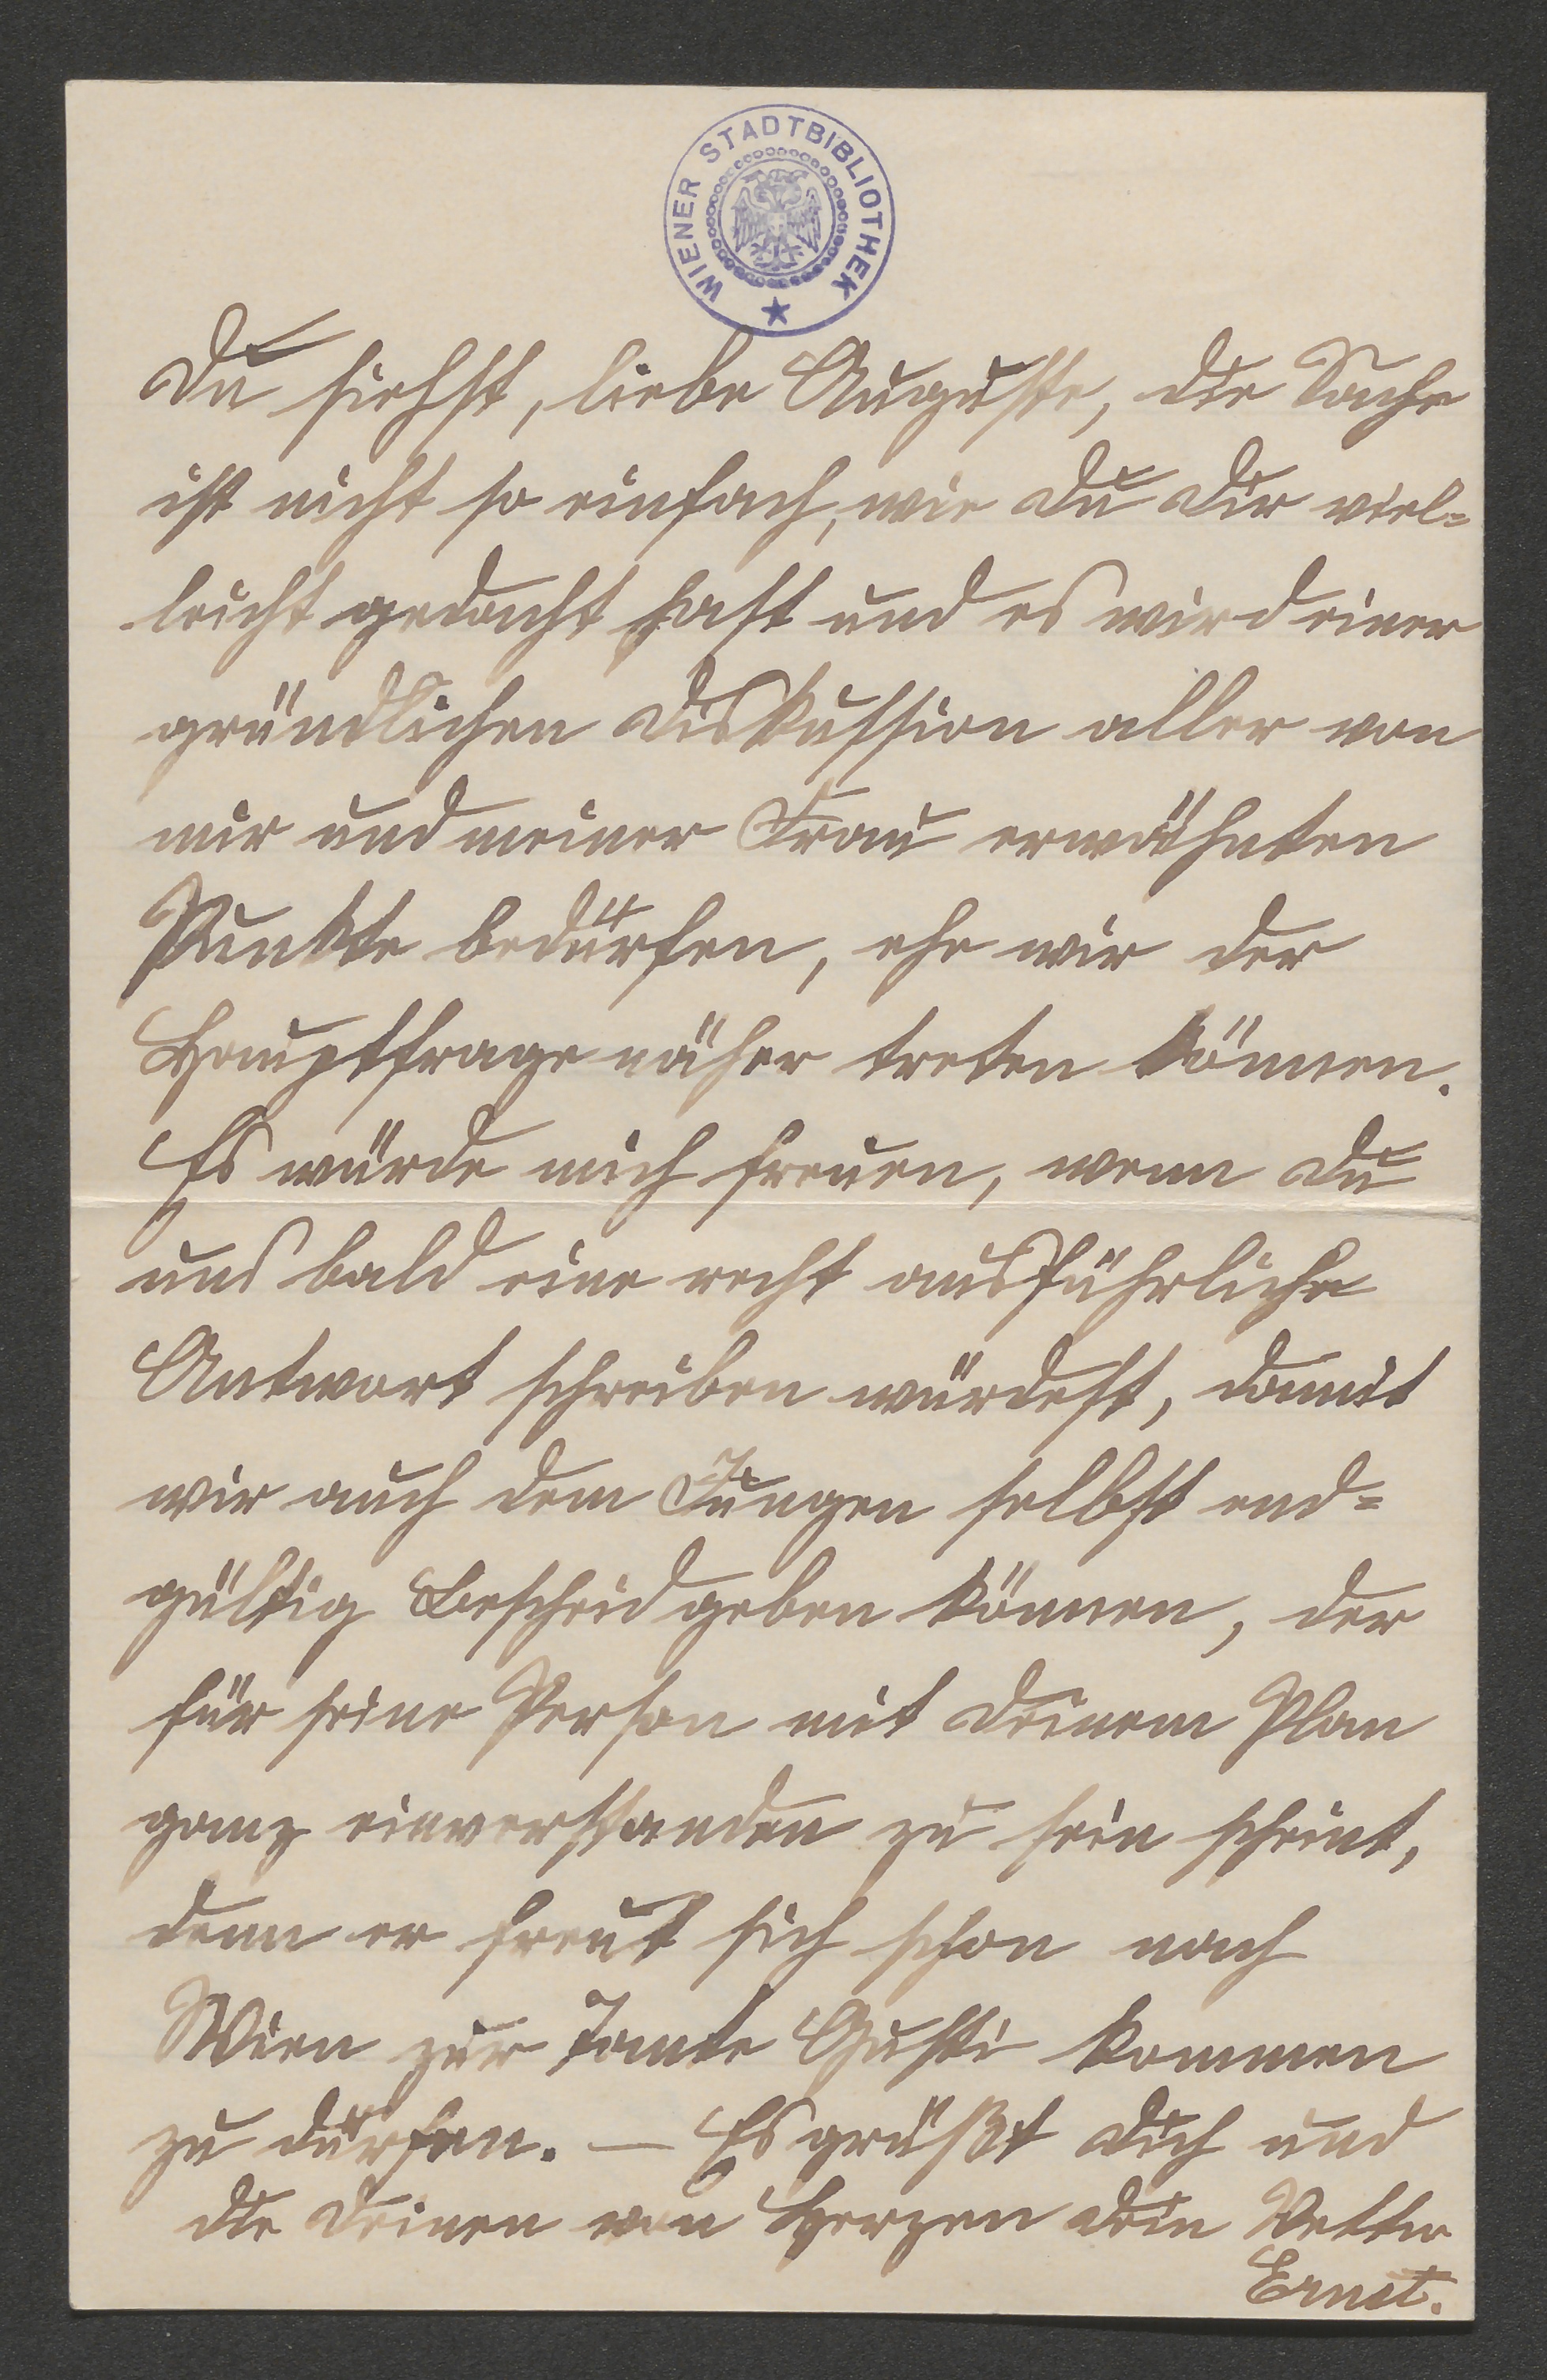 WIENER STADTBIBLIOTHEK
Du siehst, liebe Auguste, die Sache
ist nicht so einfach, wie Du Dir viel=
leicht gedacht hast und es wird einer
gründlichen Diskussion aller von
mir und meiner Frau erwähnten
Punkte bedürfen, ehe wir der
Hauptfrage näher treten können.
Es würde mich freuen, wenn Du
uns bald eine recht ausführliche
Antwort schreiben würdest, damit
wir auch dem Jungen selbst end=
gültig Bescheid geben können, der
für seine Person mit Deinem Plan
ganz einverstanden zu sein scheint,
denn er freut sich schon nach
Wien zur Tante Gusti kommen
zu dürfen. — Es grüßt Dich und
die Deinen von Herzen Dein Vetter
Ernst.